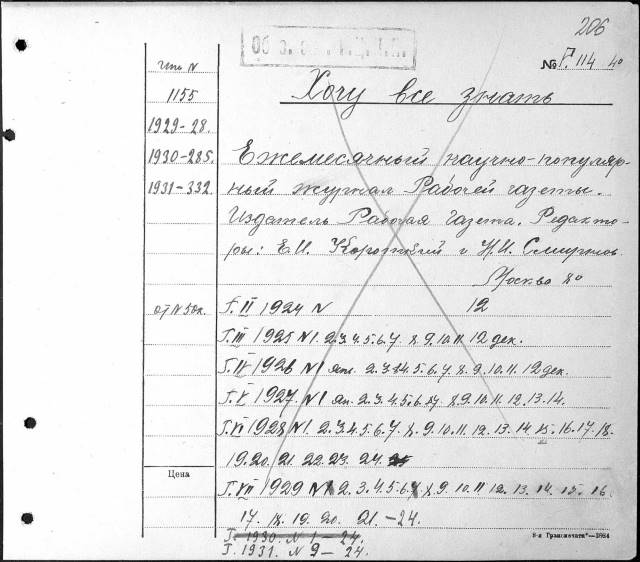 206
№ Р. 114 4°
Инв N
1155
Хочу все знать
1929-28.
1930-285.
1931-332.
Ежемесячный научно-популяр-
ный журнал Рабочей газеты.
Издатель Рабочая Газета. Редакто-
ры: Е.И. и Н.И. Смирнов
Москва 8°
Т. II 1924 N 12
Т. III 1925 N 1. 2. 3. 4. 5. 6. 7. 8. 9. 10. 11. 12 дек.
Т. IV 1926 N 1 ян. 2. 3. 4. 5. 6. 7. 8. 9. 10. 11. 12 дек.
Т. V 1927 N 1 ян. 2. 3. 4. 5. 6. 7. 8. 9. 10. 11. 12. 13. 14.
Т. VI 1928 N 1. 2. 3. 4. 5. 6. 7. 8. 9. 10. 11. 12. 13. 14. 15. 16. 17. 18.
19. 20. 21. 22. 23. 24. 25
Цена
Т. VII 1929 N 1 2. 3. 4. 5. 6. 7. 8. 9. 10. 11. 12. 13. 14. 15. 16.
17. 18. 19. 20. 21.-24.
Т. 1930. N 1-24.
Т. 1931. N 9-24.